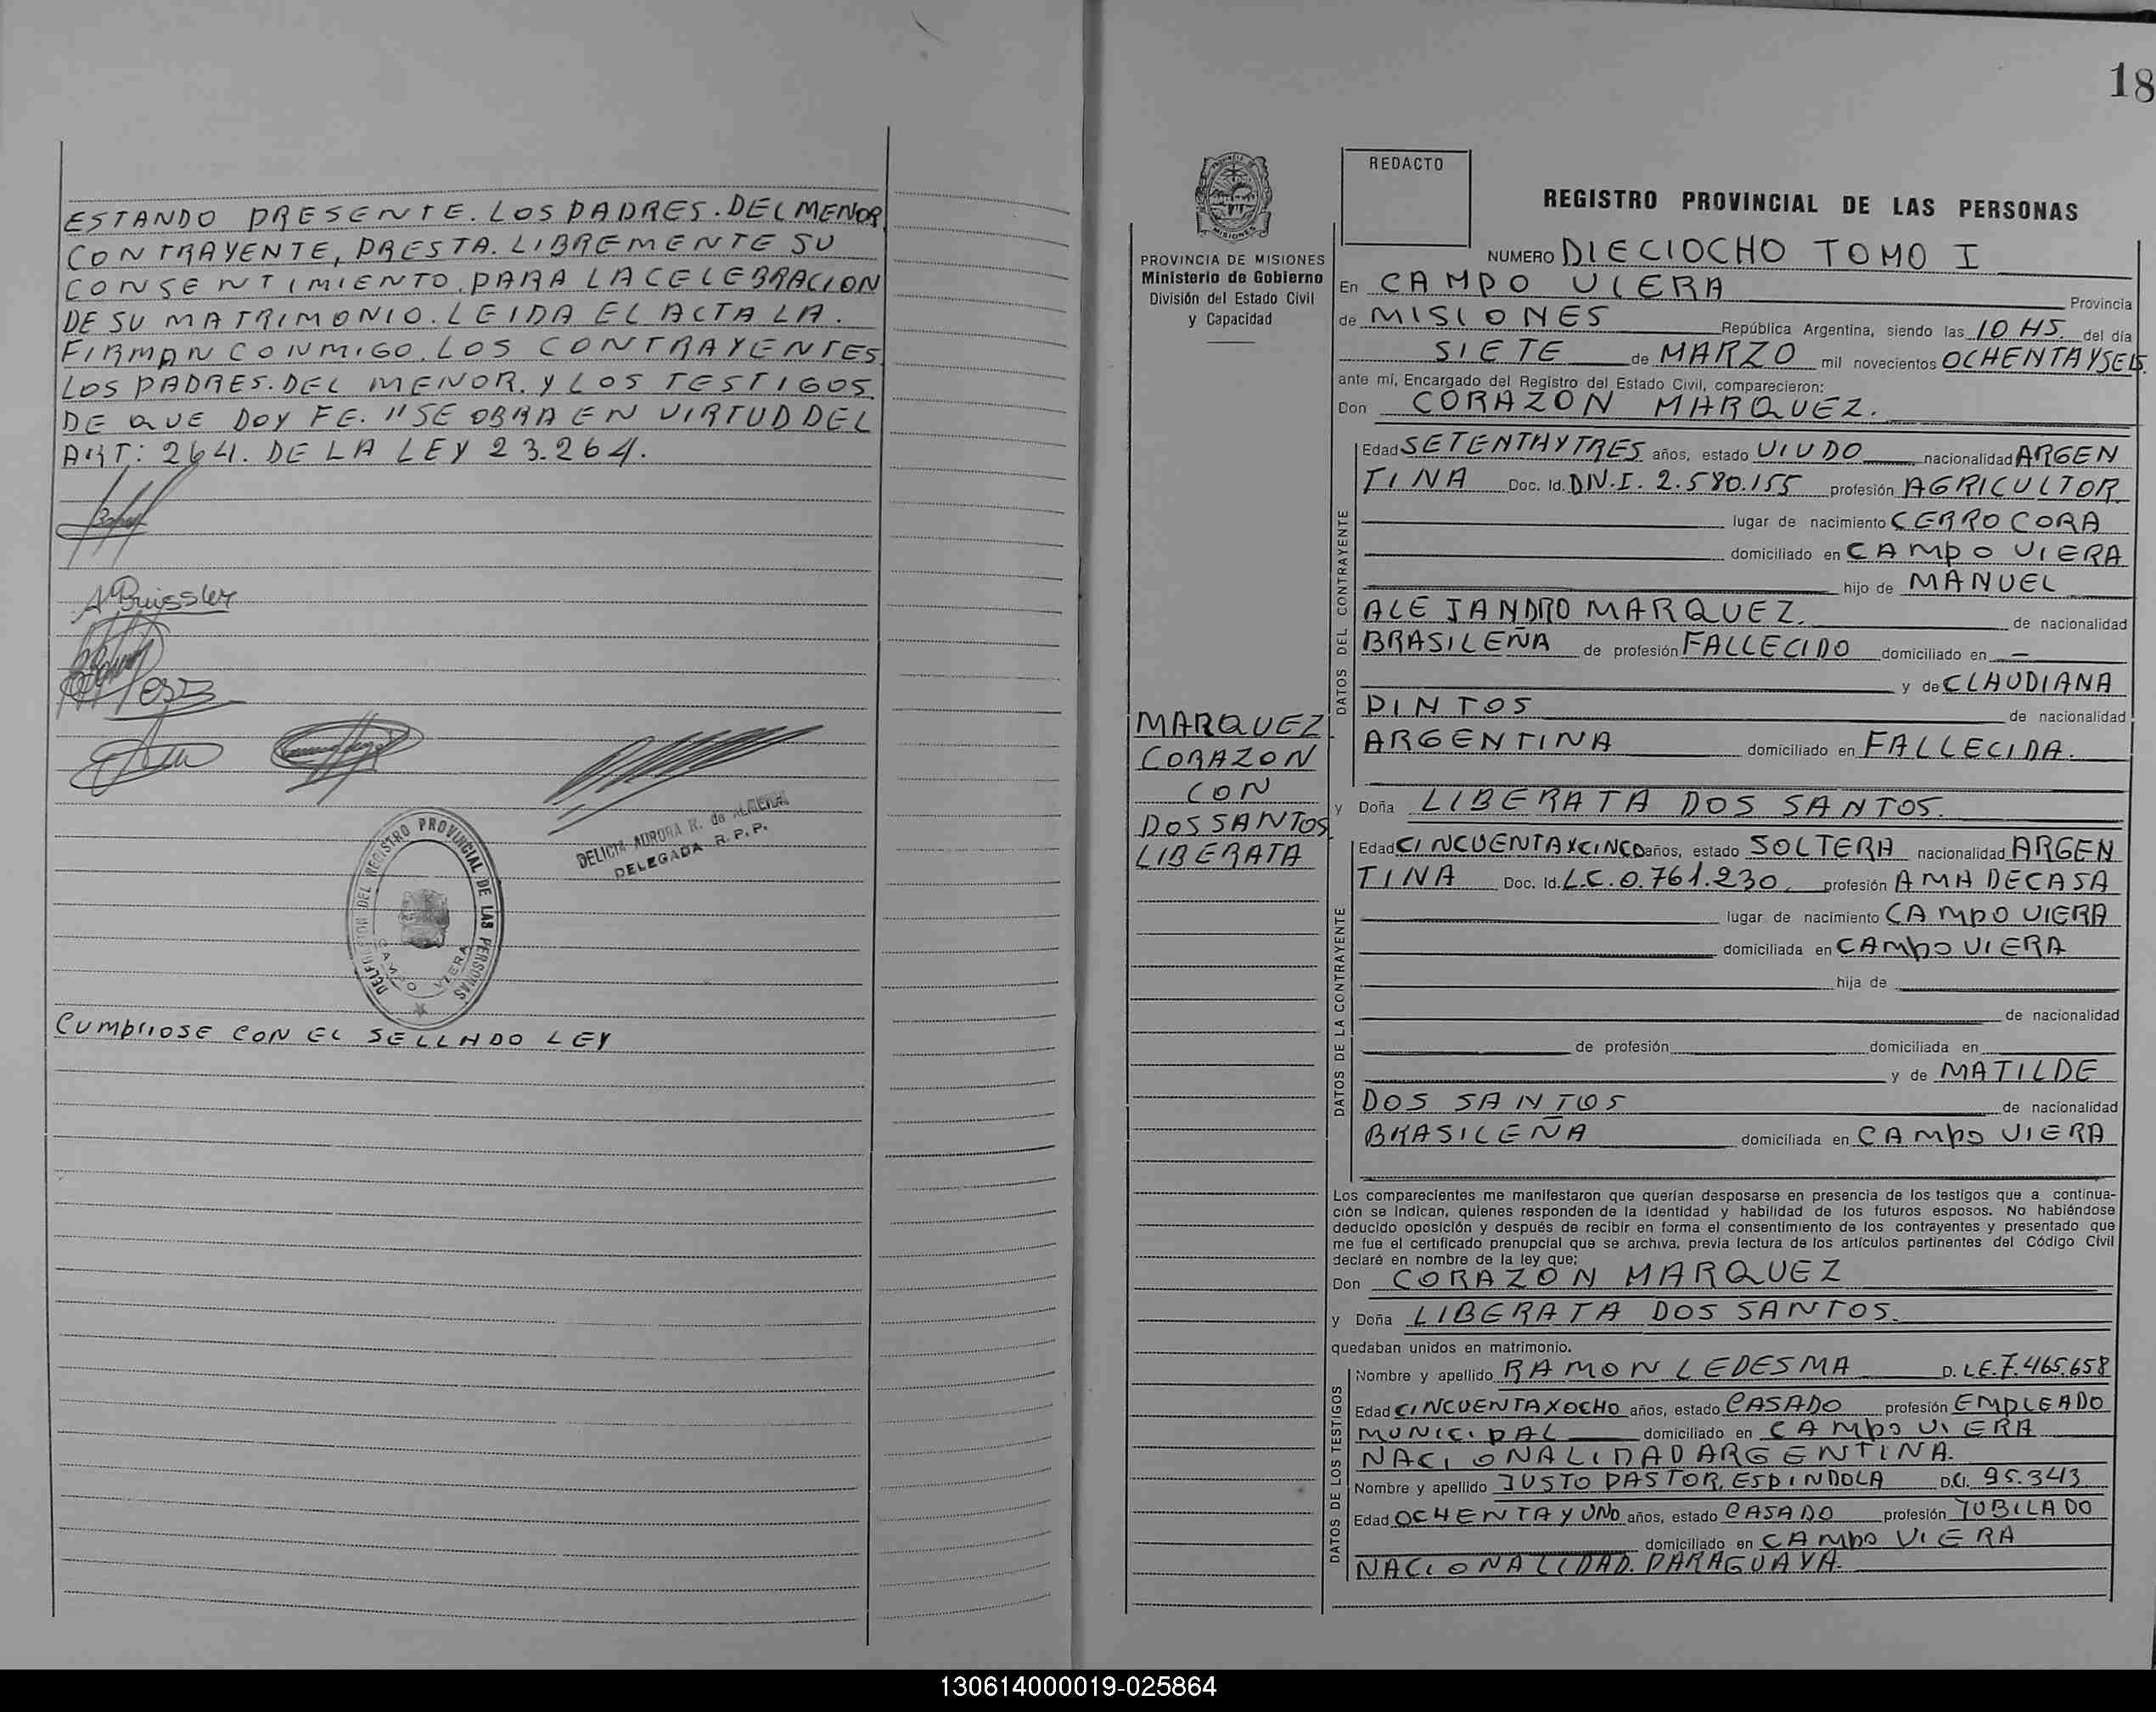 ESTANDO PRESENTE. LOS PADRES. DEL MENOR
CONTRAYENTE, PRESTA. LIBREMENTE SU
CONSENTIMIENTO. PARA LA CELEBRACION
DE SU MATRIMONIO. LEIDA EL ACTA LA.
FIRMAN CONMIGO. LOS CONTRAYENTES.
LOS PADRES. DEL MENOR. Y LOS TESTIGOS.
DE QUE DOY FE. "SE OBRA EN VIRTUD DEL
ART: 264. DE LA LEY 23.264.
DELICIA AURORA R. de ALMEIDA
DELEGADA R.P.P.
DEL REGISTRO PROVINCIAL DE LAS PERSONAS
CAMPO VIERA
CUMPLIOSE CON EL SELLADO LEY
18
REDACTO
REGISTRO PROVINCIAL DE LAS PERSONAS
PROVINCIA DE MISIONES
Ministerio de Gobierno
División del Estado Civil
y Capacidad
NUMERO DIECIOCHO TOMO I
En CAMPO VIERA Provincia
de MISIONES República Argentina, siendo las 10 HS. del día
SIETE de MARZO mil novecientos OCHENTAYSEIS.
ante mí, Encargado del Registro del Estado Civil, comparecieron:
Don CORAZON MARQUEZ.
DATOS DEL CONTRAYENTE
Edad SETENTAYTRES años, estado VIUDO nacionalidad ARGEN
TINA Doc. Id. DN.I. 2.580.155 profesión AGRICULTOR
lugar de nacimiento CERRO CORA
domiciliado en CAMPO VIERA
hijo de MANUEL
ALEJANDRO MARQUEZ. de nacionalidad
BRASILEÑA de profesión FALLECIDO domiciliado en —
y de CLAUDIANA
PINTOS de nacionalidad
ARGENTINA domiciliado en FALLECIDA.
MARQUEZ
CORAZON
CON
DOS SANTOS
LIBERATA
y Doña LIBERATA DOS SANTOS.
DATOS DE LA CONTRAYENTE
Edad CINCUENTAYCINCO años, estado SOLTERA nacionalidad ARGEN
TINA Doc. Id. L.C. 0.761.230. profesión AMA DECASA
lugar de nacimiento CAMPO VIERA
domiciliada en CAMPO VIERA
hija de
de nacionalidad
de profesión domiciliada en
y de MATILDE
DOS SANTOS de nacionalidad
BRASILEÑA domiciliada en CAMPO VIERA
Los comparecientes me manifestaron que querían desposarse en presencia de los testigos que a continua-
ción se indican, quienes responden de la identidad y habilidad de los futuros esposos. No habiéndose
deducido oposición y después de recibir en forma el consentimiento de los contrayentes y presentado que
me fue el certificado prenupcial que se archiva, previa lectura de los artículos pertinentes del Código Civil
declaré en nombre de la ley que;
Don CORAZON MARQUEZ
y Doña LIBERATA DOS SANTOS.
quedaban unidos en matrimonio.
DATOS DE LOS TESTIGOS
Nombre y apellido RAMON LEDESMA D. LE.7.465.658
Edad CINCUENTAYOCHO años, estado CASADO profesión EMPLEADO
MUNICIPAL domiciliado en CAMPO VIERA
NACIONALIDAD ARGENTINA.
Nombre y apellido JUSTO PASTOR. ESPINDOLA D.CI. 95.343
Edad OCHENTA Y UNO años, estado CASADO profesión JUBILADO
domiciliado en CAMPO VIERA
NACIONALIDAD. PARAGUAYA.
130614000019-025864